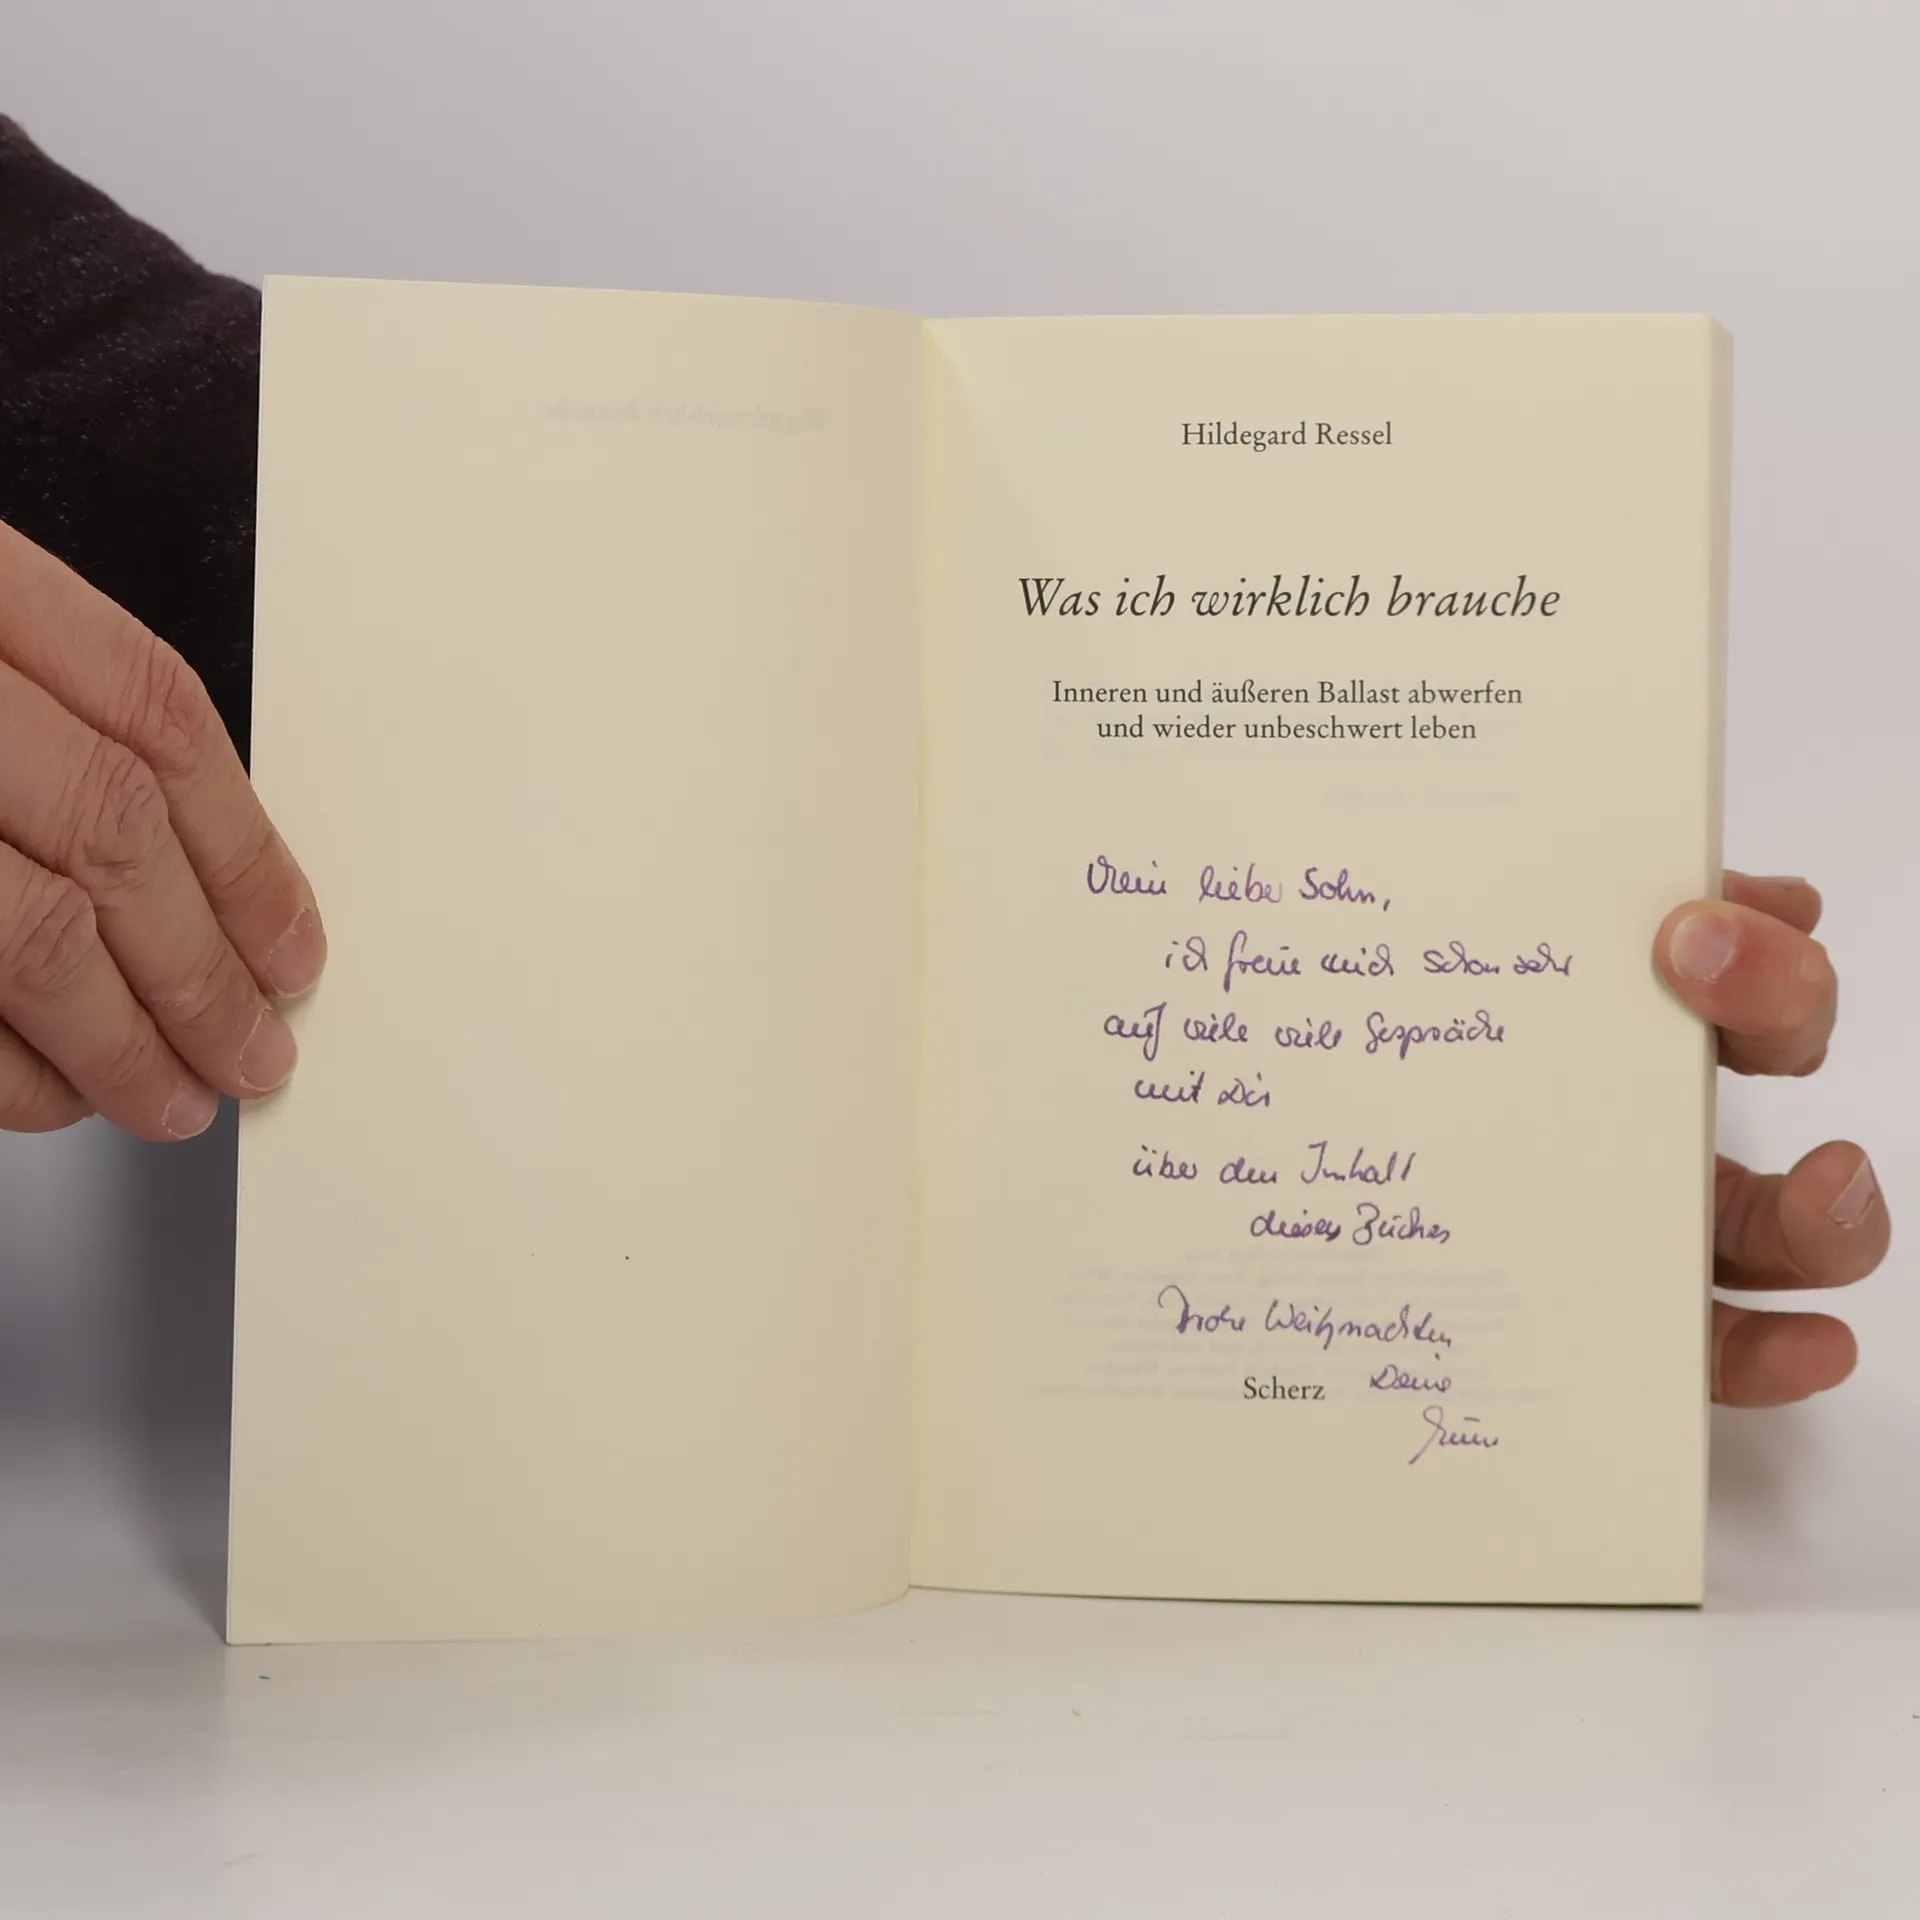 Hildegard Ressel
Was ich wirklich brauche
Inneren und äußeren Ballast abwerfen
und wieder unbeschwert leben
Mein lieber Sohn,
ich freue mich schon sehr
auf viele viele Gespräche
mit Dir
über den Inhalt
dieses Buches
Frohe Weihnachten
Scherz Deine